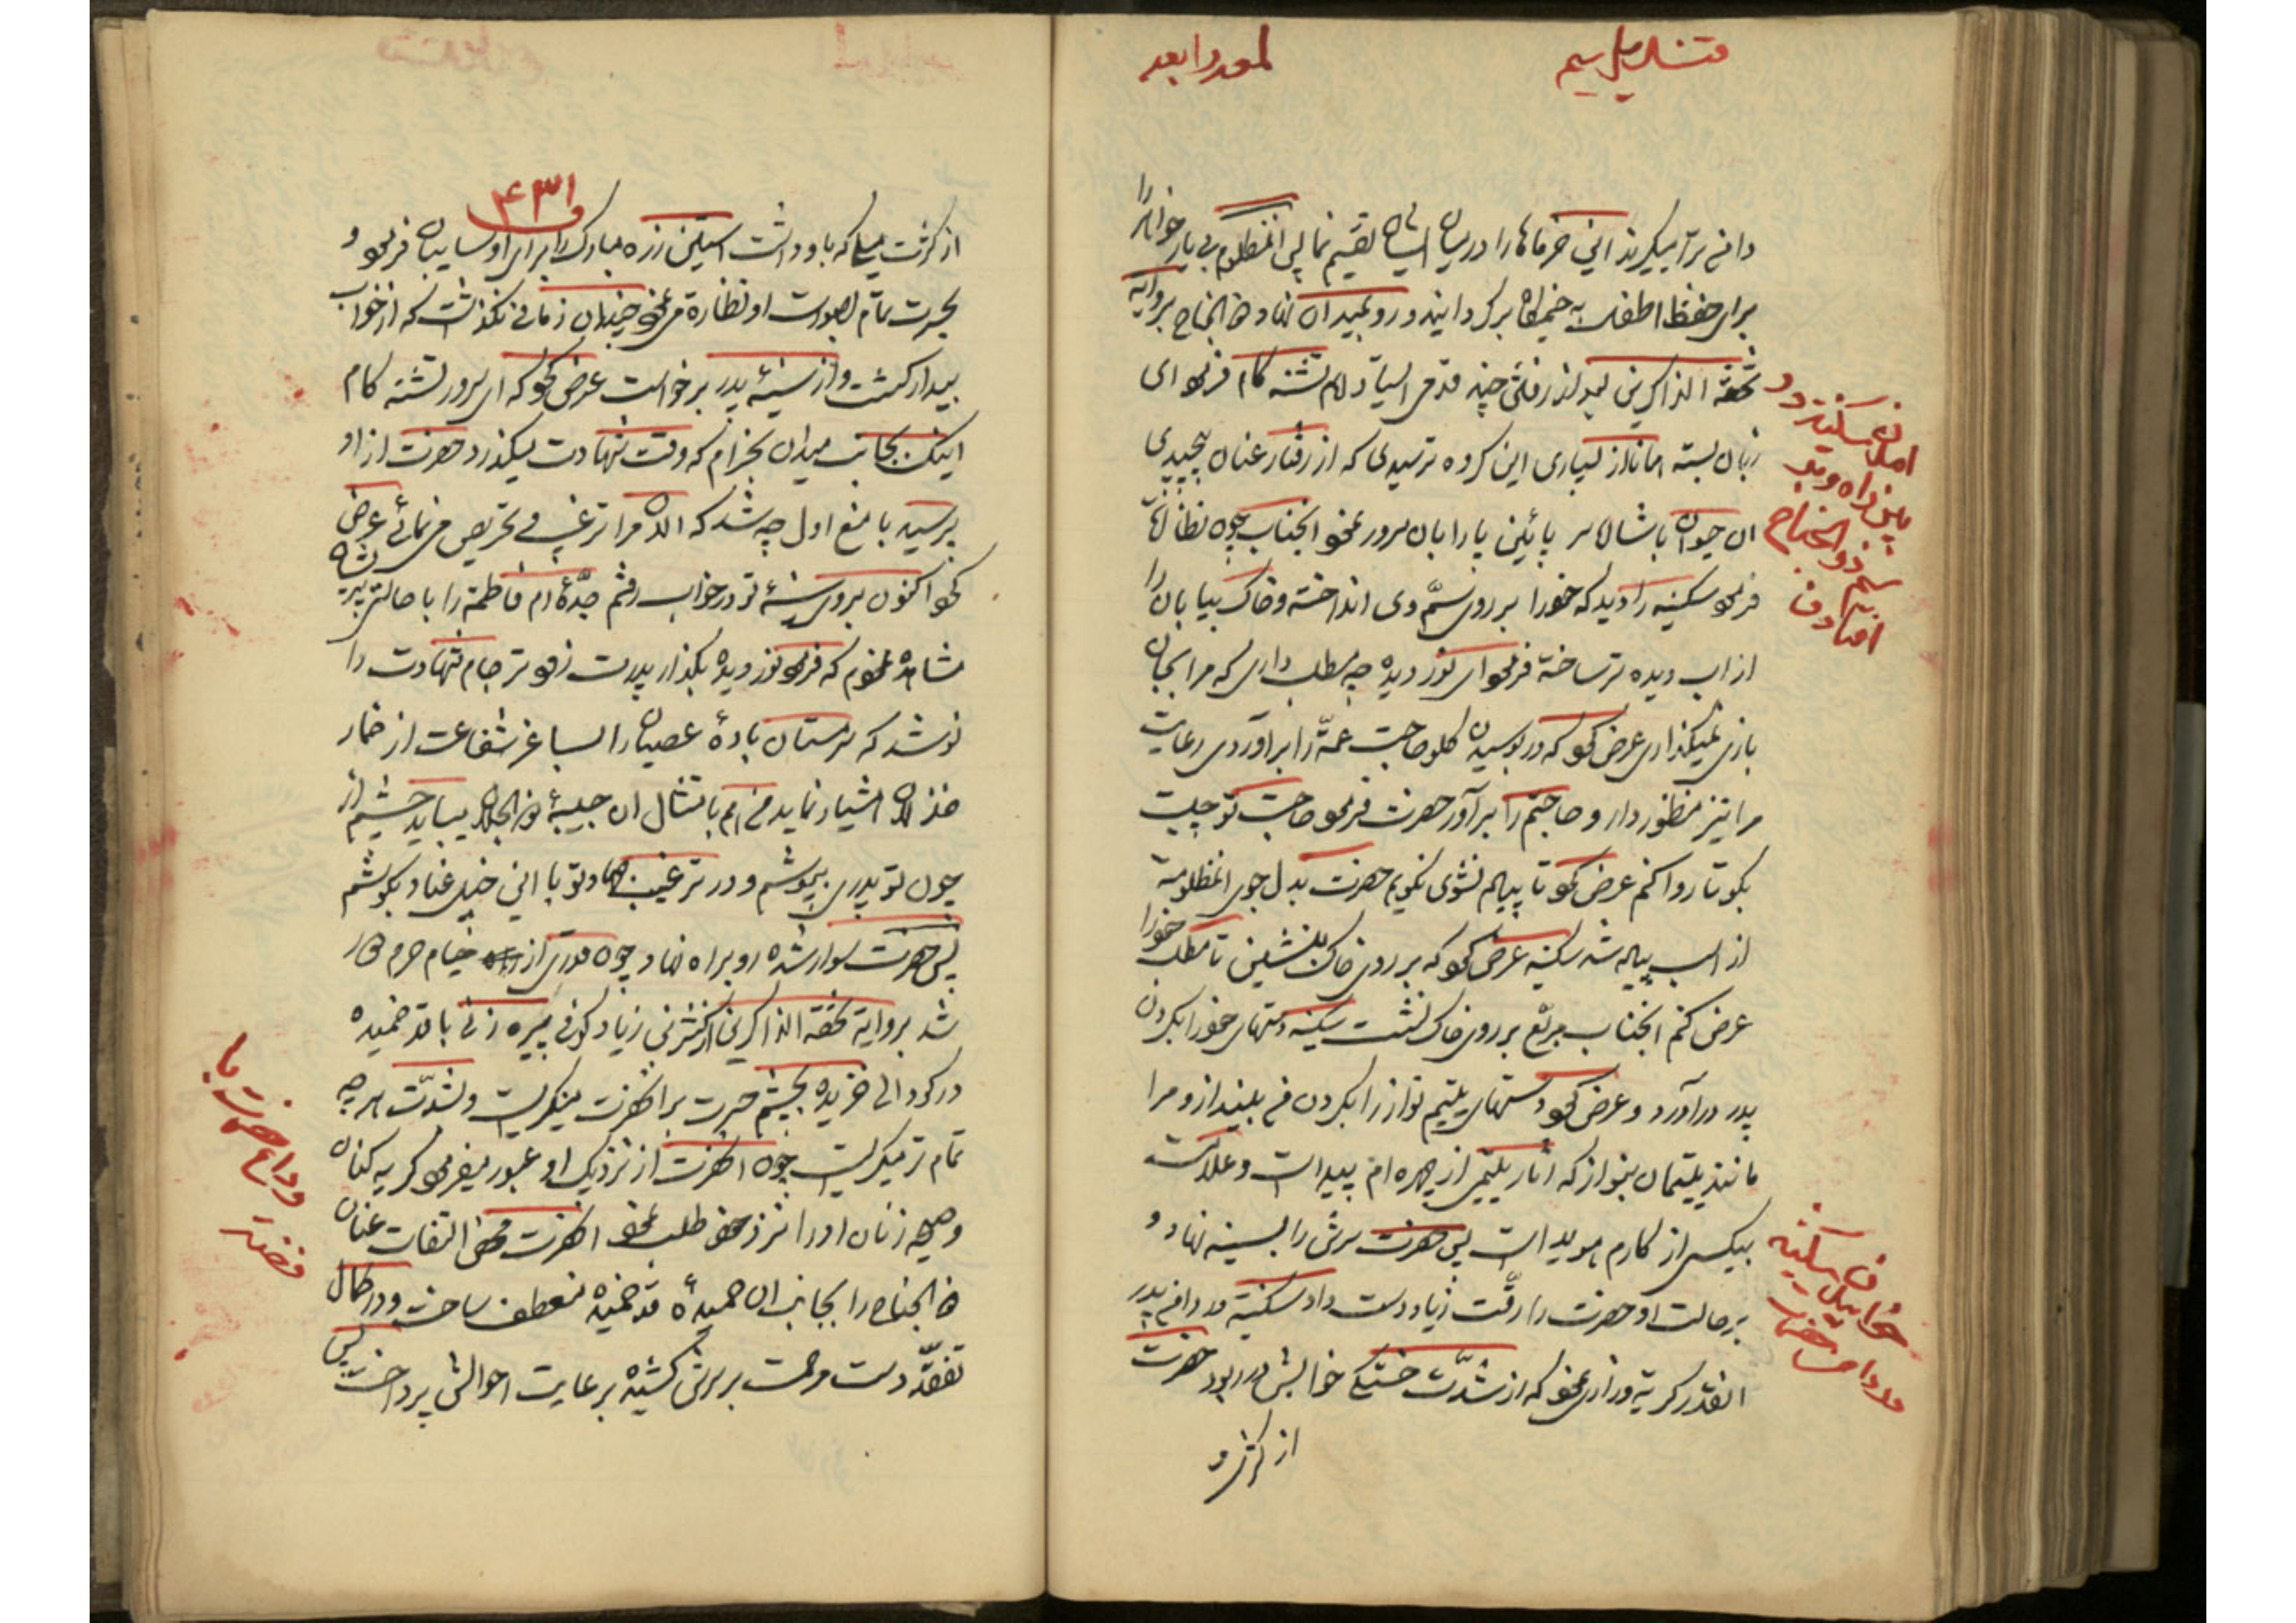 دانه برآ میگیرند این خرماها را در میان ایشان تقسیم نما پس انمظلوم بی یار خواهر را
برای حفظ اطفال به خیمه‌گاه برگردانید و رو بمیدان نهاد ذو الجناح بروایة
تحفه الذاکرین بعد از رفتن چند قدمی ایستاد امام تشنه کام فرمود ای
زبان بسته امانا از بسیاری این گروه ترسیدی که از رفتار عنان پیچیدی
ان حیوان با شاره سر پائین پا را بان سرور نمود انجناب چون نظاره
فرمود سکینه را دید که خود را بر روی سم وی انداخته و خاک بیابان را
از اب دیده تر ساخته فرمود ای نور دیده چه مطلب داری که مرا بجان
بازی نمیگذاری عرض کرد که در بوسیدن گلو حاجت عمه را برآوردی رعایت
مرا نیز منظور دار و حاجتم را برآور حضرت فرمود حاجت تو چیست
بگو تا روا کنم عرض کرد تا پیاده نشوی نگویم حضرت بدل جوی انمظلومه
از اسب پیاده شد سکینه عرض کرد که بر روی خاک بنشین تا مطلب خود را
عرض کنم انجناب مربع بر روی خاک نشست سکینه دستهای خود را بگردن
پدر درآورد و عرض کرد دستهای یتیم نواز را بگردن من بینداز و مرا
مانند یتیمان بنواز که اثار یتیمی از چهره ام پیدا است و علامت
بیکسی از کارم هویدا است پس حضرت سرش را بسینه نهاد و
برحالت او حضرت را رقت زیاد دست داد سکینه در دامن پدر
انقدر گریه و زاری نمود که از شدت خستگی خوابش در ربود حضرت
از کثرت
امدن سکینه در
بین راه و بر
سم ذو الجناح
افتادن
خوابیدن سکینه
در دامن حضرت
۴۳۱
از کثرت میلی که باو داشت استین زره مبارک را برای او سایبان فرمود و
بحیرت تمام بصورت او نظاره می نمود چندان زمانی نگذشت که از خواب
بیدار گشت و از سینهٔ پدر برخواست عرض کرد که ای سرور تشنه کام
اینک بجانب میدان بخرام که وقت شهادت میگذرد حضرت از او
پرسید با منع اول چه شد که الان مرا ترغیب و تحریص می نمائی عرض
کرد اکنون بروی سینهٔ تو در خواب رفتم جدهٔ ام فاطمه را با حالت پریشان
مشاهده نمودم که فرمود نور دیده بگذار پدرت زودتر جام شهادت را
نوشد که سرمستان بادهٔ عصیان را بساغر شفاعت از خمار
چون تو پدری بپوشم و در ترغیب جهاد تو با این خیل عناد بکوشم
پس حضرت سوار شده رو براه نهاد چون قدری از خیام حرم دور
شد بروایة تحفة الذاکرین از کثرت زیاد کوفی پیره زنی با قد خمیده
در گودالی خزیده بچشم حیرت بر انحضرت مینگریست و بشدت هر چه
تمام تر میگریست چون انحضرت از نزدیک او عبور میفرمود گریه کنان
ذو الجناح را بجانب ان حمیدهٔ قد خمیده منعطف ساخت و در کمال
تفقد دست مرحمت بر سرش کشیده برعایت احوالش پرداخت پس
وداع حضرت با
فضه